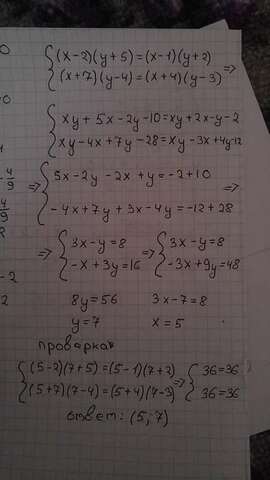 {(x-2)(y+5)=(x-1)(y+2)
{(x+7)(y-4)=(x+4)(y-3) =>
{xy+5x-2y-10=xy+2x-y-2
{xy-4x+7y-28=xy-3x+4y-12
=> {5x-2y-2x+y=-2+10 =>
{-4x+7y+3x-4y=-12+28
=> {3x-y=8 => {3x-y=8
{-x+3y=16 {-3x+9y=48
8y=56 3x-7=8
y=7 x=5
проварка
{(5-2)(7+5)=(5-1)(7+2) => {36=36
{(5+7)(7-4)=(5+4)(7-3) {36=36
ответ: (5; 7)